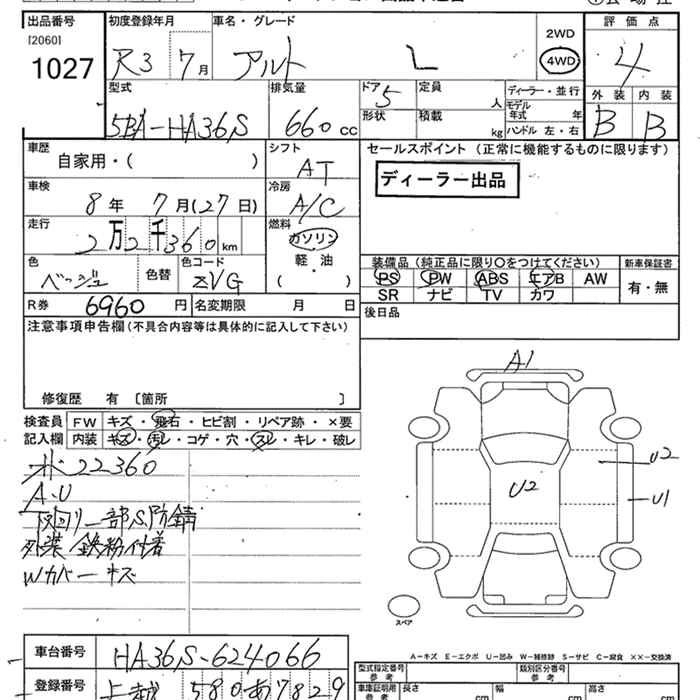 出品番号 初度登録年月 車名・グレード 評価点
[2060]
1027
R3 7月 アルト L
2WD
4WD
4
型式 排気量 ドア 定員 ディーラー・並行 外装 内装
5BA-HA36S 660cc 5 人
モデル年式 年
形状 積載 kg ハンドル 左・右
B B
車歴 シフト セールスポイント(正常に機能するものに限ります)
自家用・( ) AT
ディーラー出品
車検 冷房
8年 7月(27日) A/C
走行 燃料
2万2千360km ガソリン
軽・油
( )
色 色替 色コード
ベージュ ZVG
装備品(純正品に限り○をつけてください) 新車保証書
PS PW ABS エアB AW 有・無
SR ナビ TV カワ
R券 6960円 名変期限 月 日
後日品
注意事項申告欄(不具合内容等は具体的に記入して下さい)
修復歴 有 [箇所 ]
検査員 FW キズ・飛石・ヒビ割・リペア跡・×要
記入欄 内装 キズ・汚レ・コゲ・穴・スレ・キレ・破レ
22360
A.U
下回り一部S防錆
外装鉄粉付着
Wカバーキズ
A1
U2
U2
U1
スペア
A－キズ E－エクボ U－凹み W－補修跡 S－サビ C－腐食 XX－交換済
車台番号 HA36S-624066
型式指定番号 参考 類別区分番号 参考
登録番号 上越 580 あ 7829
車庫証明用 参考 長さ cm 幅 cm 高さ cm